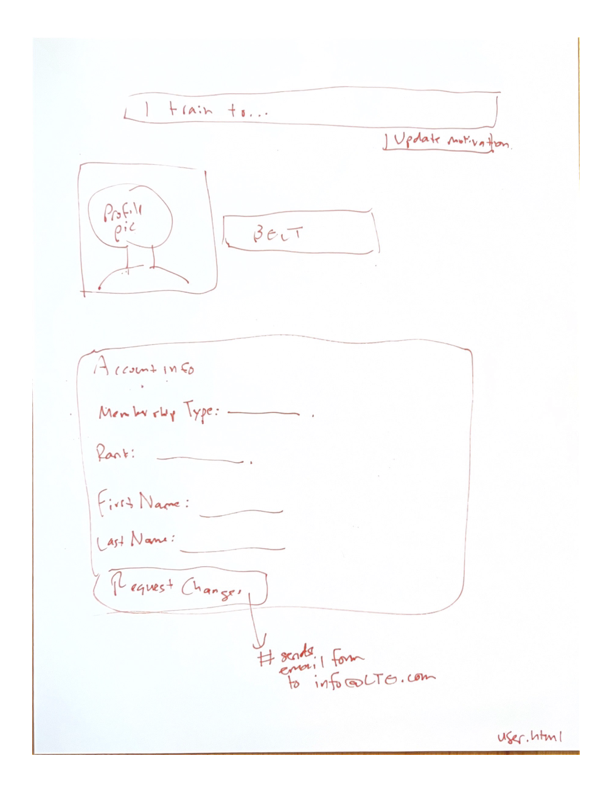 I train to...
Update motivation
Profile
pic
BELT
Account info
Membership Type:
Rank:
First Name:
Last Name:
Request Changes
# sends
email form
to info@LTG.com
user.html